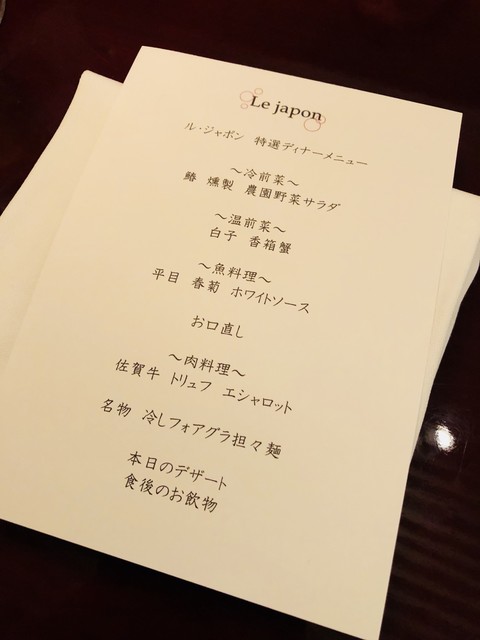 Le japon
ル・ジャポン 特選ディナーメニュー
～冷前菜～
鰆 燻製 農園野菜サラダ
～温前菜～
白子 香箱蟹
～魚料理～
平目 春菊 ホワイトソース
お口直し
～肉料理～
佐賀牛 トリュフ エシャロット
名物 冷しフォアグラ担々麺
本日のデザート
食後のお飲物